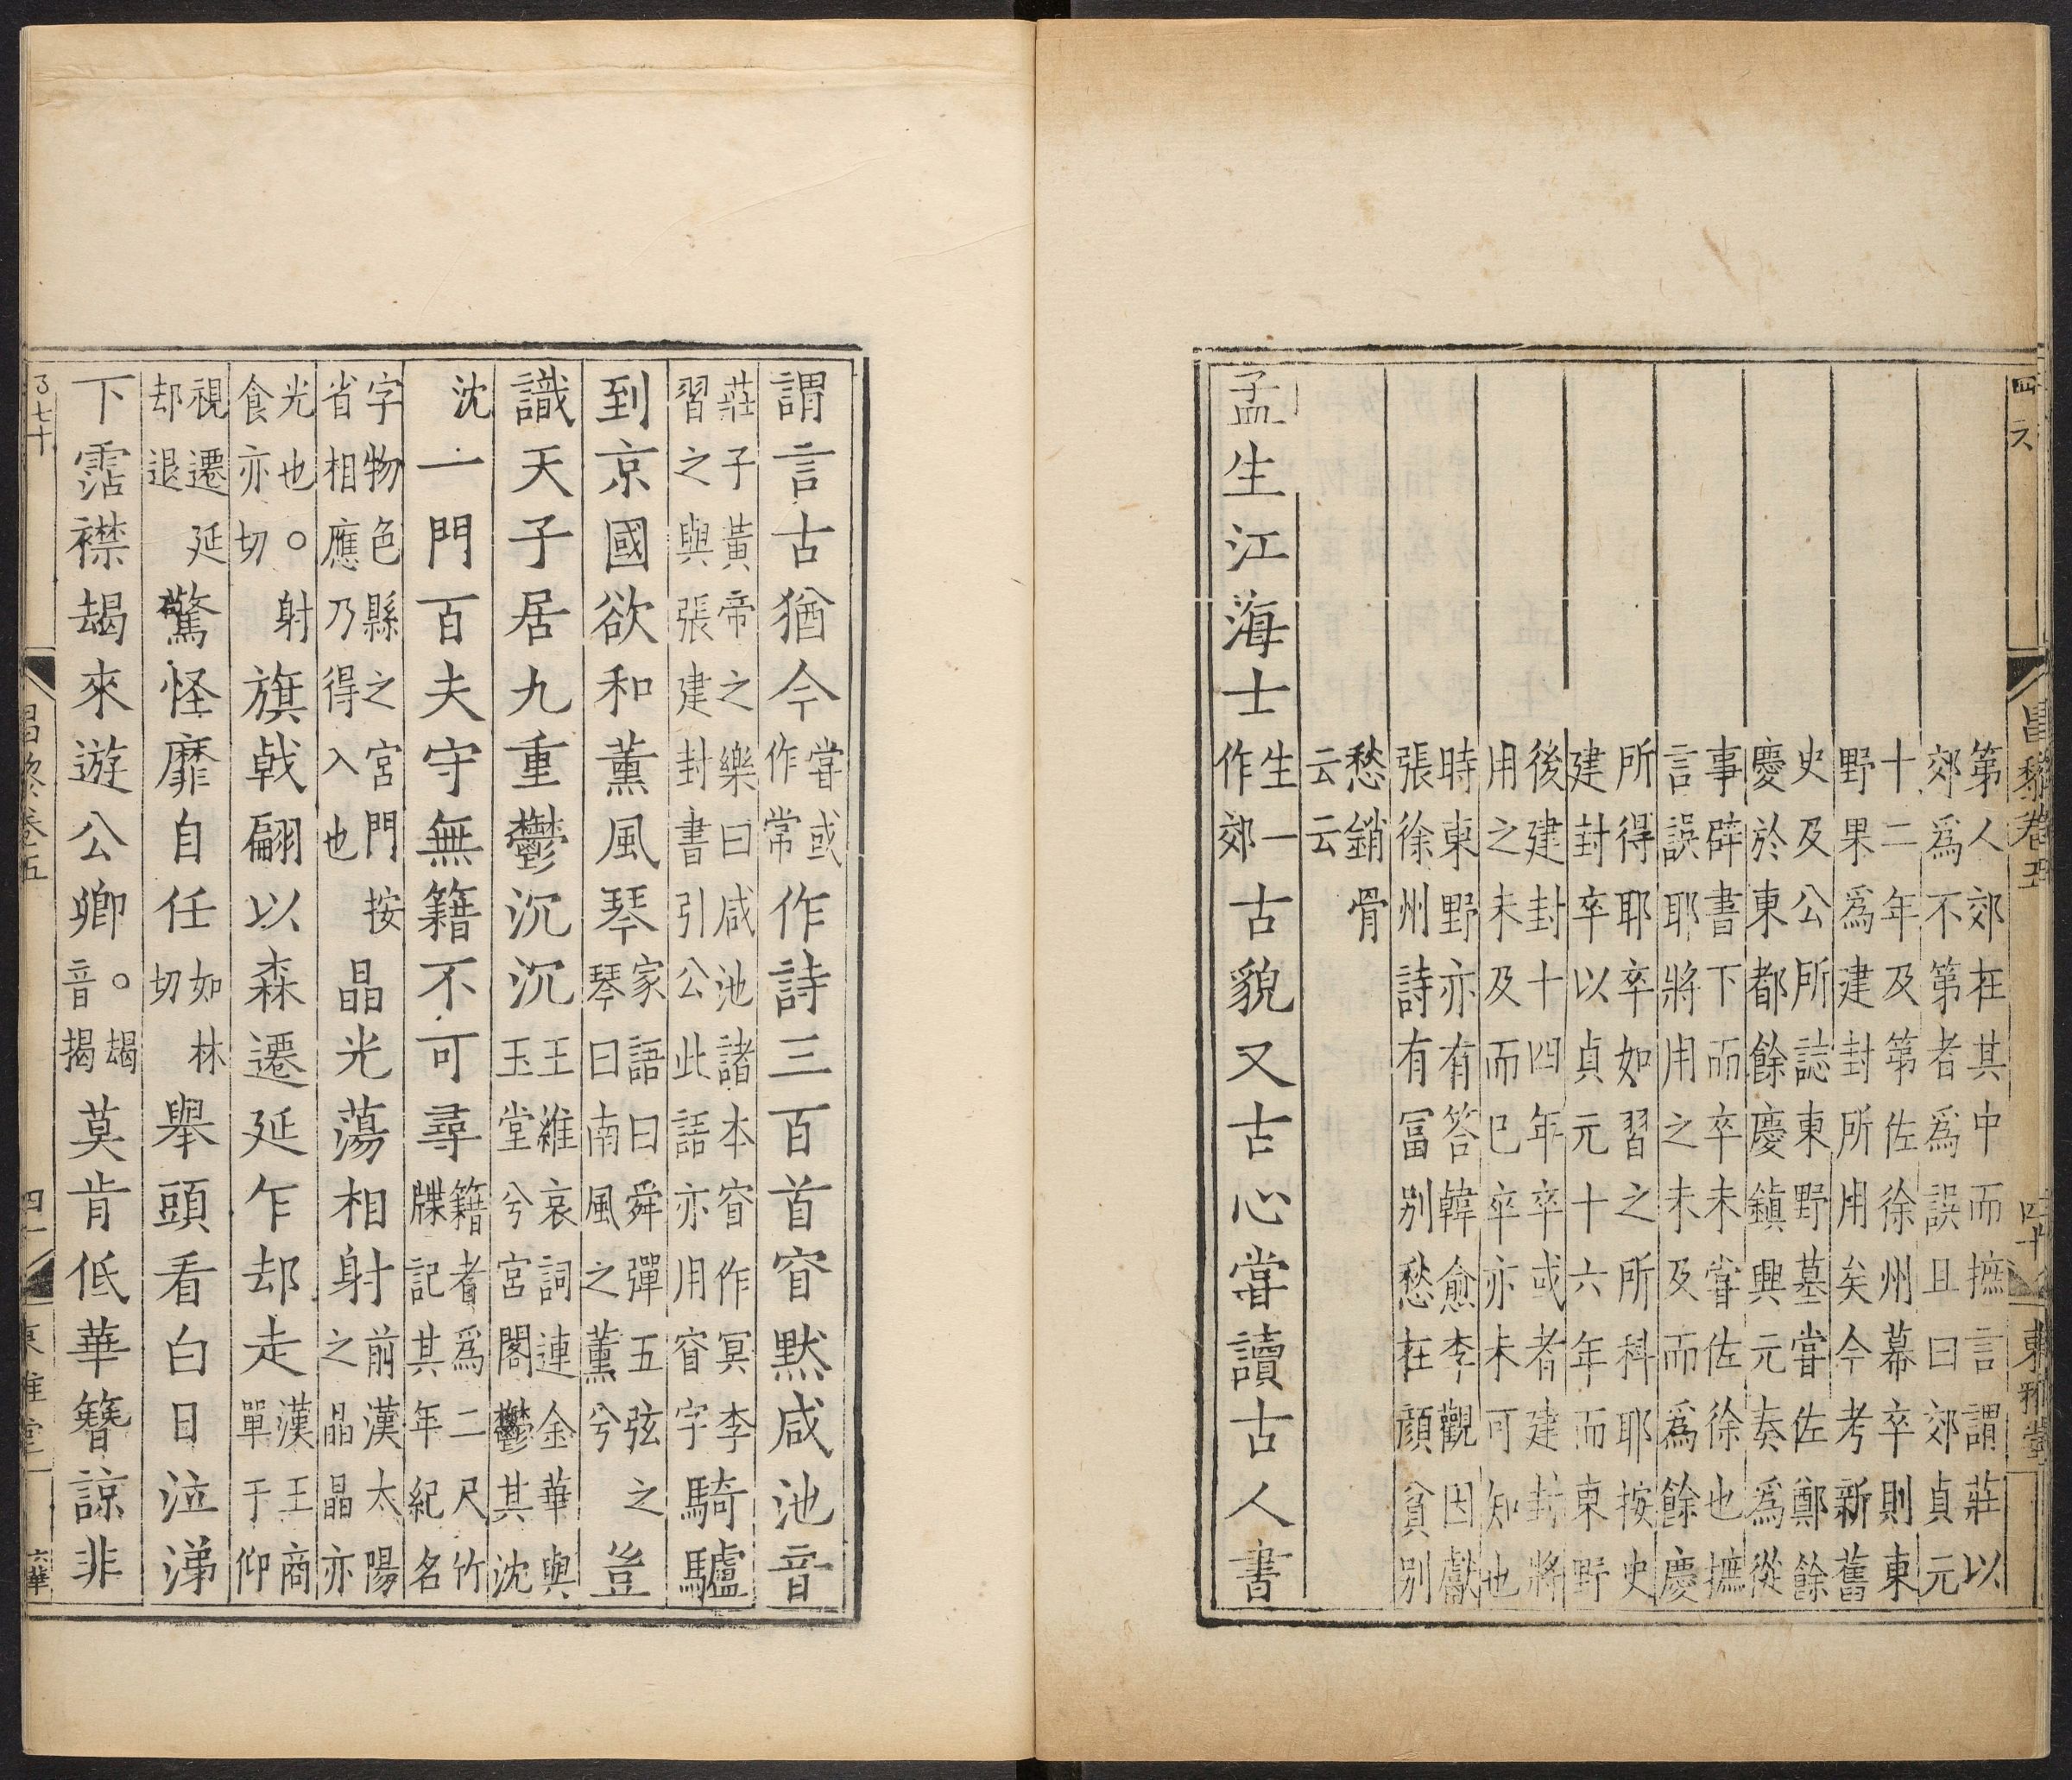 四六
昌黎卷五
四十
東雅堂
第人郊在其中而摭言謂莊以
郊為不第者為誤且曰郊貞元
十二年及第佐徐州幕卒則東
野果爲建封所用矣今考新舊
史及公所誌東野墓嘗佐鄭餘
慶於東都餘慶鎮興元奏爲從
事辟書下而卒未嘗佐徐也摭
言誤耶將用之未及而爲餘慶
所得耶卒如習之所科耶按史
建封卒以貞元十六年而東野
後建封十四年卒或者建封將
用之未及而已卒亦未可知也
時東野亦有答韓愈李觀因獻
張徐州詩有冨别愁在顔貧别
愁銷骨
云云
孟生江海士生一作郊古貌又古心嘗讀古人書
謂言古猶今嘗或作常作詩三百首窅默咸池音
莊子黃帝之樂曰咸池諸本窅作冥李
習之與張建封書引公此語亦用窅字騎驢
到京國欲和薰風琴家語曰舜彈五弦之琴曰南風之薰兮豈
識天子居九重鬱沉沉王維哀詞連金華與玉堂兮宮閣鬱其沈
沈一門百夫守無籍不可尋籍者爲二尺竹牒記其年紀名
字物色縣之宮門按
省相應乃得入也晶光蕩相射前漢太陽之晶晶亦
光也○射
食亦切旗戟翩以森遷延乍却走漢王商單于仰
視遷延
却退驚怪靡自任如林切舉頭看白日泣涕
下霑襟朅來遊公卿○朅音揭莫肯低華簪諒非
昌黎卷五
四十一
東雅堂
六華